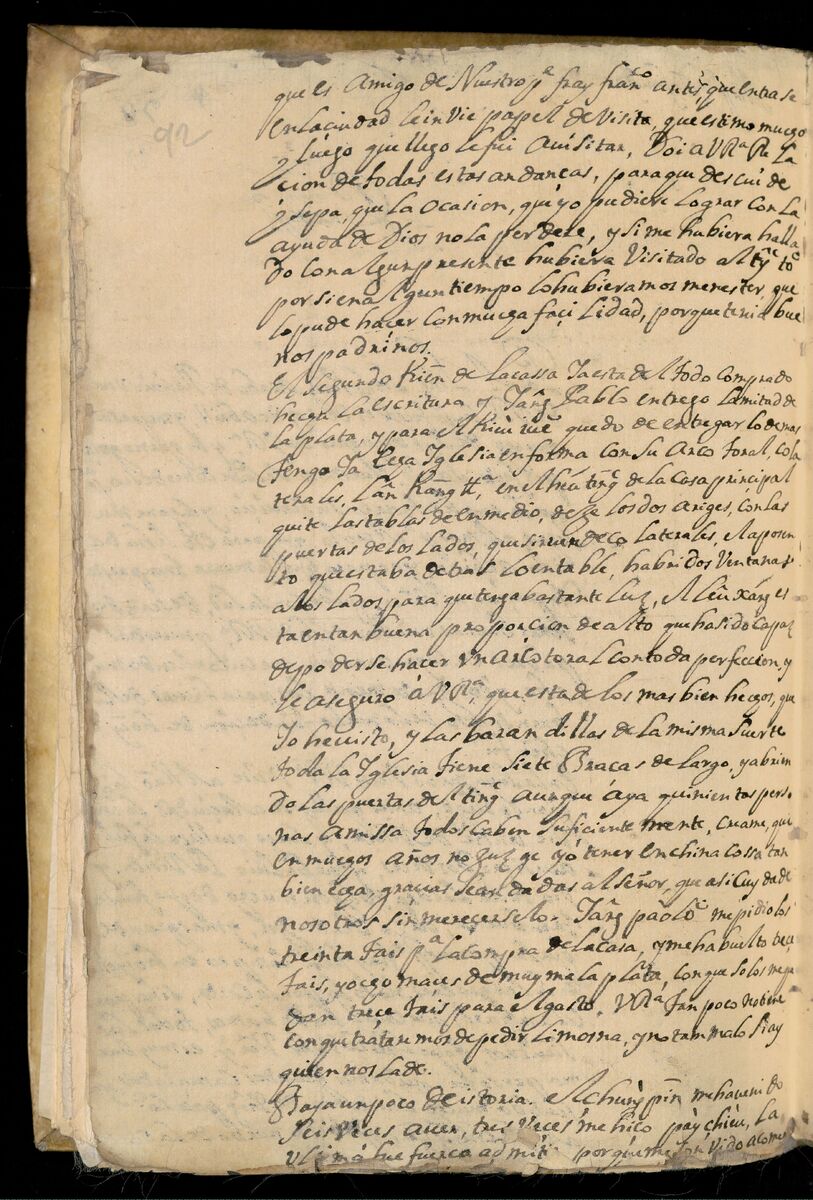 92
que es Amigo de Nuestro pe fray franco antes, q̃ entrase
en la ciudad le invie papel de Visita, que estimo muego
y luego que llego le fui a visitar, Doi a VRa Rela
cion de todas estas andanças, para que descuide
y sepa, que la ocasion, que yo pudiere lograr con la
ayuda de Dios no la perdere, y si me hubiera halla
Do con algun presente hubiera Visitado al
por si en algun tiempo lo hubieramos menester, que
lo pude hacer con muega façilidad, porque tenia bue
nos padrinos.
El segundo Kien de la cassa Ja esta del todo comprado
hecga la escritura y Jang Pablo entrego la mitad de
la plata, y para el quedo de entregar lo demas
Tengo Ja ecga Jglesia en forma con su Arco toral, cola
terales, en el de la Casa principal
quite las tablas de en medio, deze los dos ariges, con las
puertas de los lados, que sirven de colaterales, el aposen
to que estaba detras lo entable, habri dos Ventanas
a los lados para que tenga bastante luz, el es
ta en tan buena proporcion de alto que ha sido capaz
de poderse hacer un arco toral con toda perfeccion, y
le aseguro a VRa, que esta de los mas bien hecgos, que
Jo he visto, y las barandillas de la misma suerte
toda la Jglesia tiene siete Braças de largo, y abrien
do las puertas del ting aunque aya quinientas perso
nas a missa todos caben suficientemente, creame, que
en muegos años no zuzge yo tener en china cossa tan
bien ecga, gracias sean dadas al señor, que asi cuyda de
nosotros sin merecerselo. Jang paolo me pidio los
treinta tais pa la compra de la casa, y me ha buelto trece
tais, y ocgo maces de muy mala plata, con que solos me que
dan trece tais para el gasto. VRa tan poco
con que trataremos de pedir limosna, y no tan malo si ay
quien nos la de.
Baja un poco de istoria. el me ha venido
seis veces a ver, tres veces me hico la
ultima fue fuerça admitir porque me